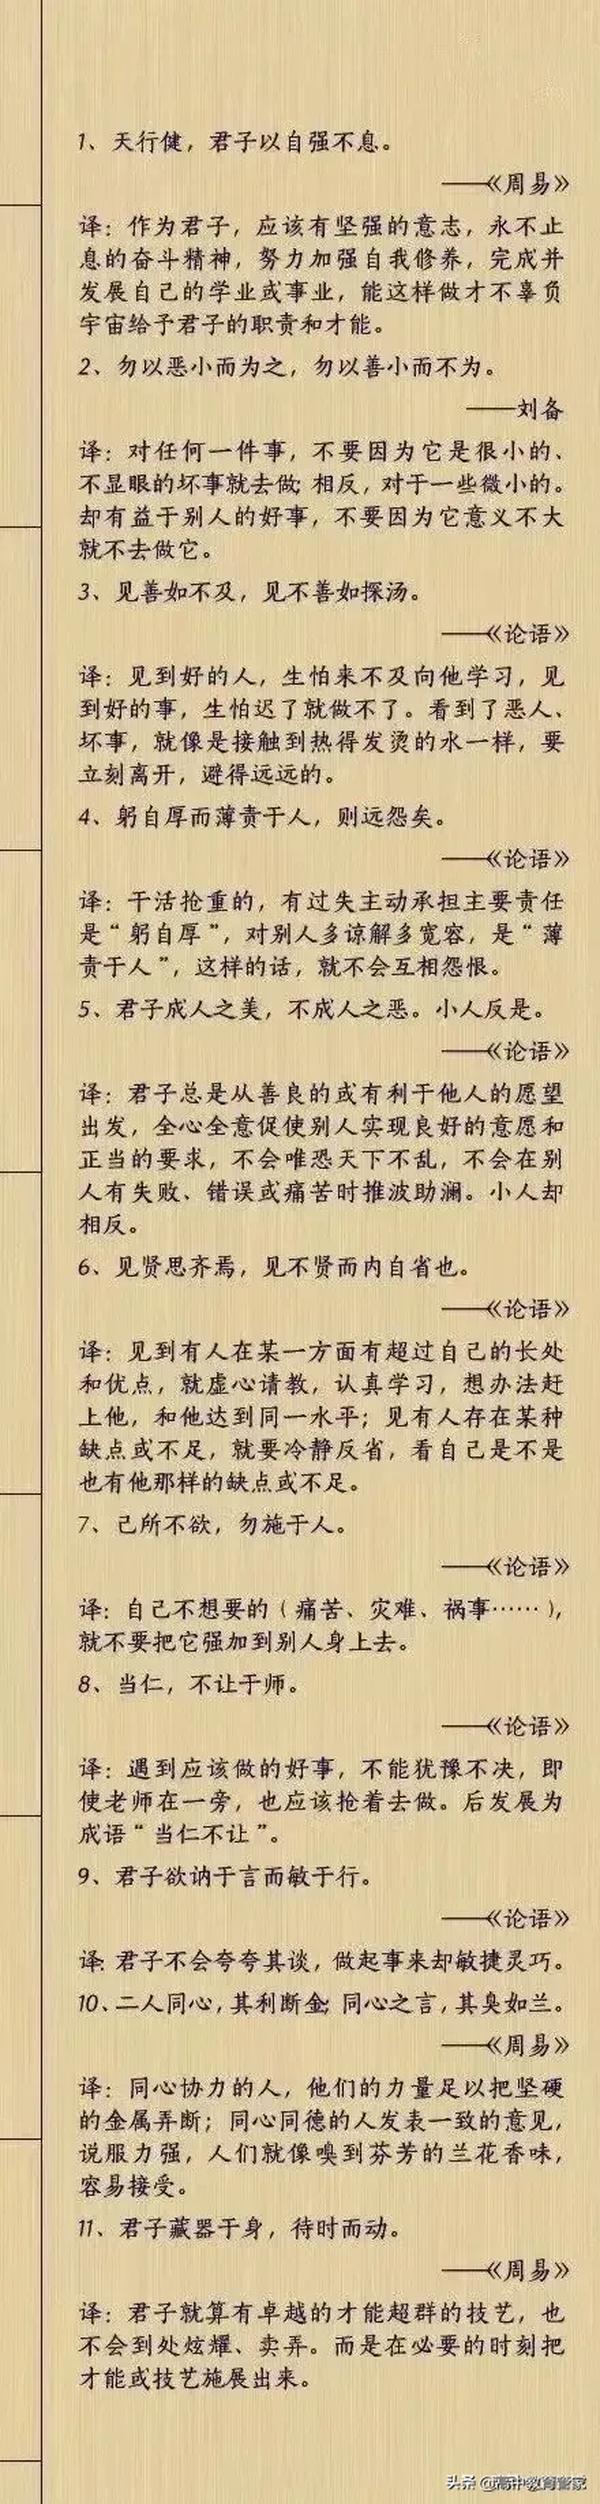 1、天行健，君子以自强不息。
——《周易》
译：作为君子，应该有坚强的意志，永不止
息的奋斗精神，努力加强自我修养，完成并
发展自己的学业或事业，能这样做才不辜负
宇宙给予君子的职责和才能。
2、勿以恶小而为之，勿以善小而不为。
——刘备
译：对任何一件事，不要因为它是很小的、
不显眼的坏事就去做；相反，对于一些微小的。
却有益于别人的好事，不要因为它意义不大
就不去做它。
3、见善如不及，见不善如探汤。
——《论语》
译：见到好的人，生怕来不及向他学习，见
到好的事，生怕迟了就做不了。看到了恶人、
坏事，就像是接触到热得发烫的水一样，要
立刻离开，避得远远的。
4、躬自厚而薄责于人，则远怨矣。
——《论语》
译：干活抢重的，有过失主动承担主要责任
是“躬自厚”，对别人多谅解多宽容，是“薄
责于人”，这样的话，就不会互相怨恨。
5、君子成人之美，不成人之恶。小人反是。
——《论语》
译：君子总是从善良的或有利于他人的愿望
出发，全心全意促使别人实现良好的意愿和
正当的要求，不会唯恐天下不乱，不会在别
人有失败、错误或痛苦时推波助澜。小人却
相反。
6、见贤思齐焉，见不贤而内自省也。
——《论语》
译：见到有人在某一方面有超过自己的长处
和优点，就虚心请教，认真学习，想办法赶
上他，和他达到同一水平；见有人存在某种
缺点或不足，就要冷静反省，看自己是不是
也有他那样的缺点或不足。
7、己所不欲，勿施于人。
——《论语》
译：自己不想要的（痛苦、灾难、祸事……），
就不要把它强加到别人身上去。
8、当仁，不让于师。
——《论语》
译：遇到应该做的好事，不能犹豫不决，即
使老师在一旁，也应该抢着去做。后发展为
成语“当仁不让”。
9、君子欲讷于言而敏于行。
——《论语》
译：君子不会夸夸其谈，做起事来却敏捷灵巧。
10、二人同心，其利断金；同心之言，其臭如兰。
——《周易》
译：同心协力的人，他们的力量足以把坚硬
的金属弄断；同心同德的人发表一致的意见，
说服力强，人们就像嗅到芬芳的兰花香味，
容易接受。
11、君子藏器于身，待时而动。
——《周易》
译：君子就算有卓越的才能超群的技艺，也
不会到处炫耀、卖弄。而是在必要的时刻把
才能或技艺施展出来。
头条 @高中教育管家